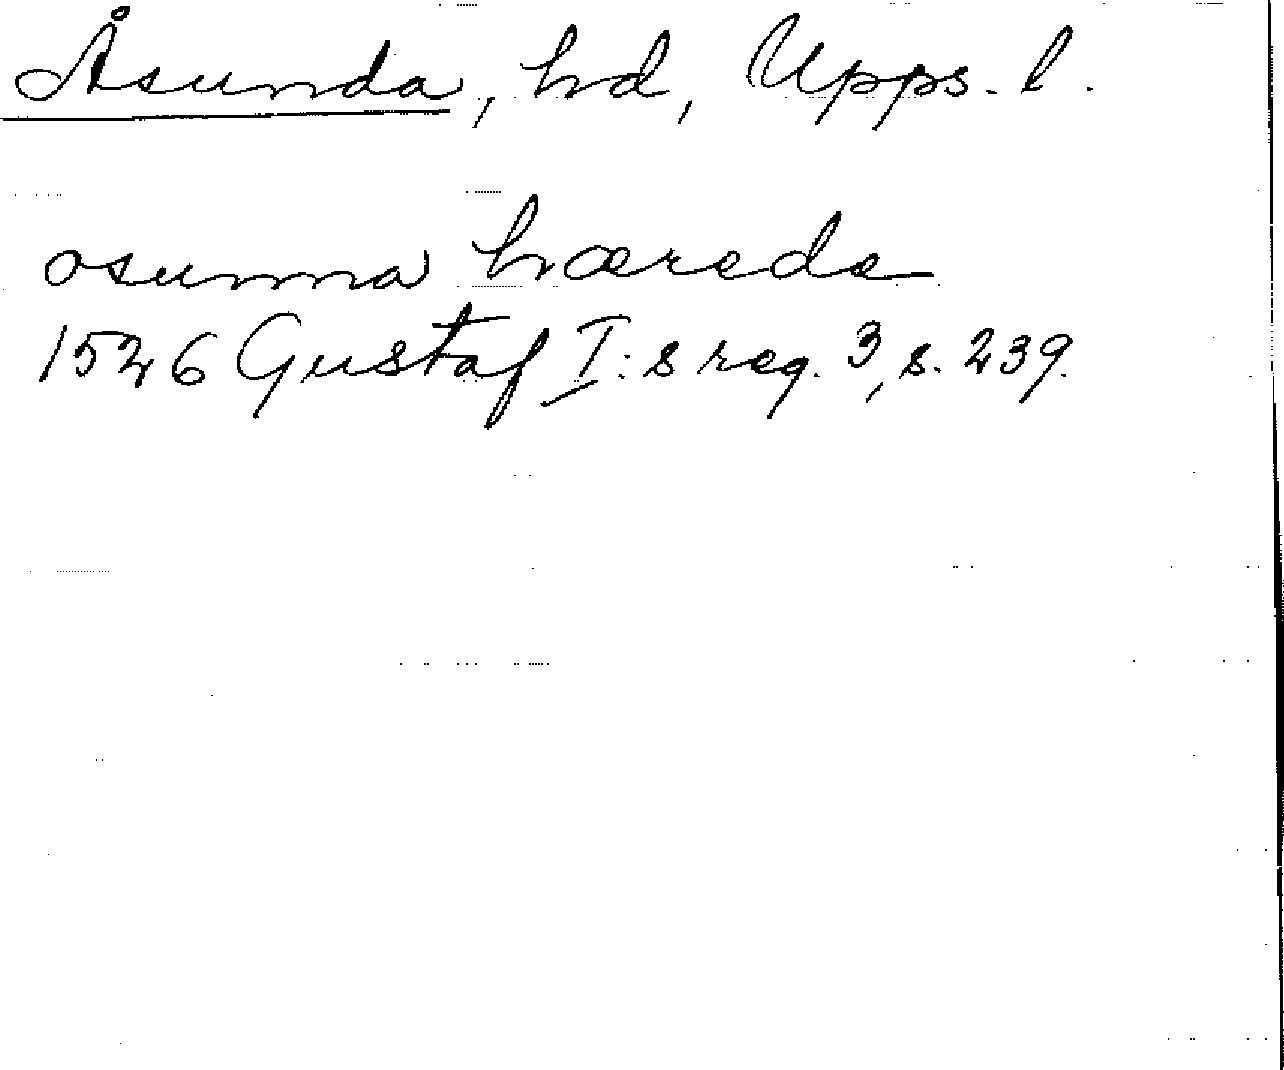 Åsunda, hd, Upps. l.
osunna hærede
1526 Gustaf I:s reg. 3, s. 239.